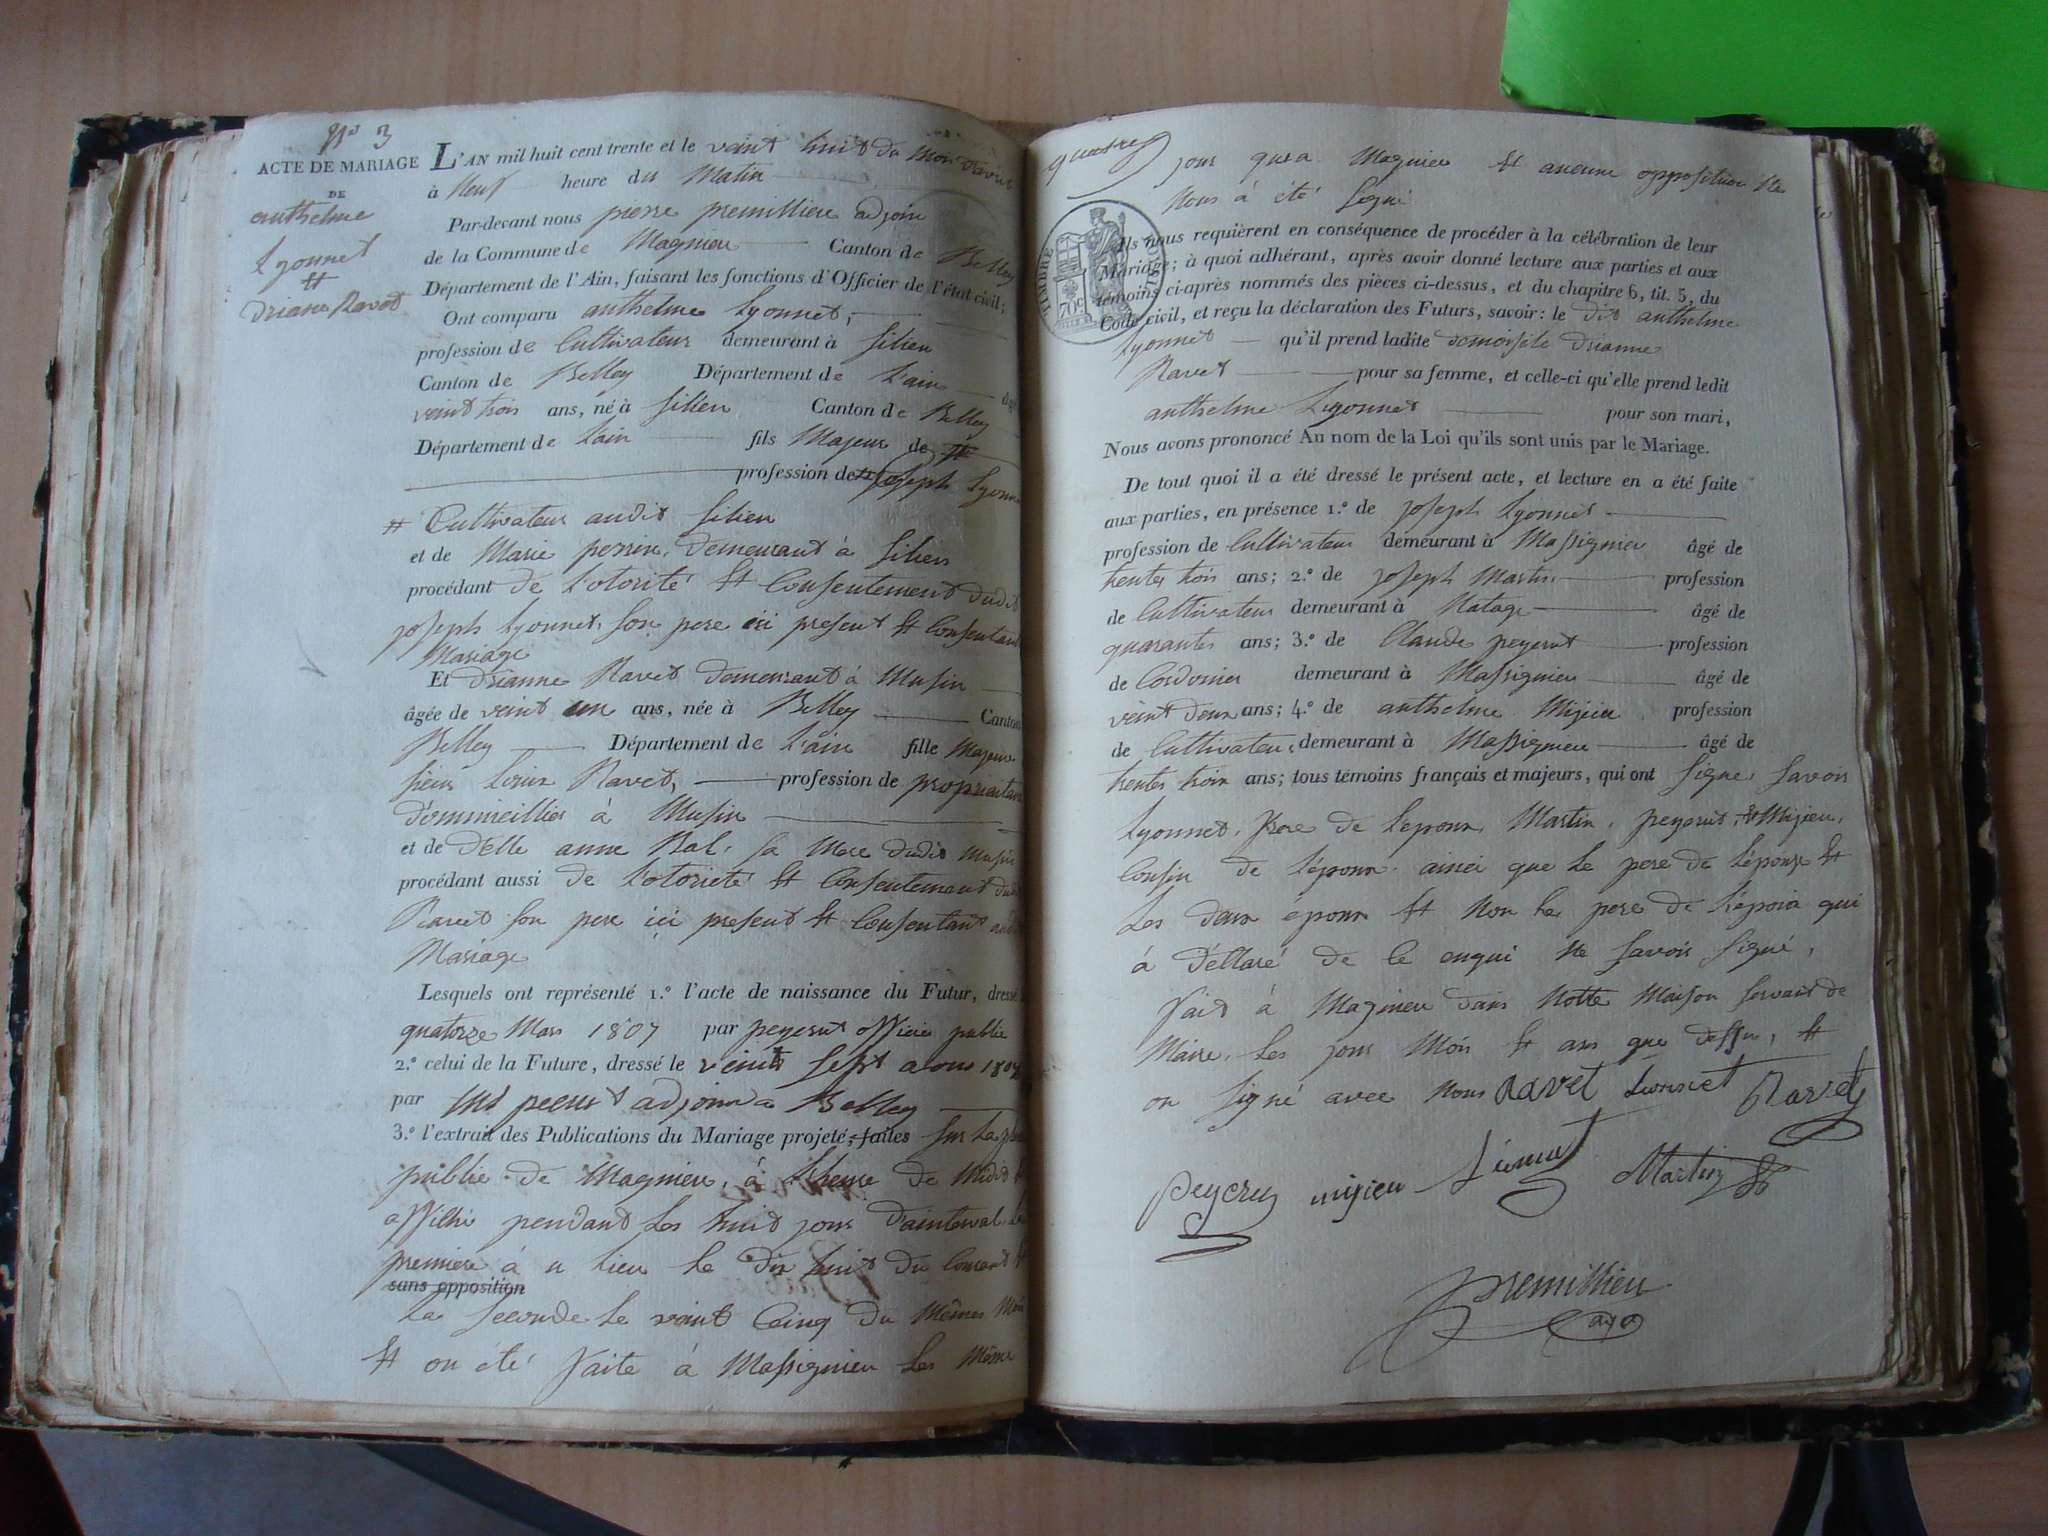 N° 3
ACTE DE MARIAGE
DE
anthelme
Lyonnet
et
Drianne Ravet
L'AN mil huit cent trente et le vaint huit du Mois d'avril
à Neuf heure du Matin
Par-devant nous pierre premillieu adjoin
de la Commune de Magnieu Canton de Belley
Département de l'Ain, faisant les fonctions d'Officier de l'état civil;
Ont comparu anthelme Lyonnet,
profession de Cultivateur demeurant à Silien
Canton de Belley Département de L'ain âgé
veint trois ans, né à Silien Canton de Belley
Département de L'ain fils Majeur de
profession de Joseph Lyonnet
# Cultivateur audit Silien
et de Marie perrin, demeurant à Silien
procédant de L'otorité et Consentement dudit
joseph Lyonnet, son pere ici present et Consentant
Mariage
Et Drianne Ravet demeurant à Musin
âgée de veint un ans, née à Belley Canton
Belley Département de L'ain fille Majeure
sieur Louis Ravet, profession de propriaitaire
d'ommicillier à Musin
et de D'elle anne Bal, sa Mere dudit Musin
procédant aussi de L'otorieté et Consentement dudit
Ravet son pere içi present et Consentant audit
Mariage
Lesquels ont représenté 1.° l'acte de naissance du Futur, dressé
quatorze Mars 1807 par peyerut officier public
2.° celui de la Future, dressé le veint sept aous 1808
par adjoind a Belley
3.° l'extrait des Publications du Mariage projeté, faites sur la place
public de Magnieu, à L'heure de Midi et
affiché pendant Les huit jour d'ainterval. La
premiere à u lieu le dix huit du Courent et
sans opposition
La seconde le veint Cinq du Mêmes Mois
et on été faite à Massignieu Les Même
quatre
jour qu'a Magnieu et aucune opposition Ne
Nous à été signé
TIMBRE
70c
Ils nous requièrent en conséquence de procéder à la célébration de leur
Mariage; à quoi adhérant, après avoir donné lecture aux parties et aux
témoins ci-après nommés des pièces ci-dessus, et du chapitre 6, tit. 5, du
Code civil, et reçu la déclaration des Futurs, savoir: le dit anthelme
Lyonnet qu'il prend ladite demoisele Drianne
Ravet pour sa femme, et celle-ci qu'elle prend ledit
anthelme Lyonnet pour son mari,
Nous avons prononcé Au nom de la Loi qu'ils sont unis par le Mariage.
De tout quoi il a été dressé le présent acte, et lecture en a été faite
aux parties, en présence 1.° de joseph Lyonnet
profession de Cultivateur demeurant à Massignieu âgé de
trentes trois ans; 2.° de joseph Martin profession
de Cultivateur demeurant à Natage âgé de
quarantes ans; 3.° de Claude peyerut profession
de Cordonier demeurant à Massignieu âgé de
veint deux ans; 4.° de anthelme Mijieu profession
de Cultivateur demeurant à Massignieu âgé de
trentes trois ans; tous témoins français et majeurs, qui ont signe, savoir
Lyonnet, frere de Lepoux, Martin, peyerut, et Mijieu,
Cousin de L'époux. ainci que Le pere de L'épouse et
Les deux époux et Non Le pere de L'époix qui
à déllaré de Ce enqui Ne savoir signé,
fait à Magnieu dans Notte Maison servant de
Maire, Les jour Mois et ans que dessus, et
on signé avec Nous Ravet Lionnet Ravet
Peycru mijieu Lionnet Martin
premillieu